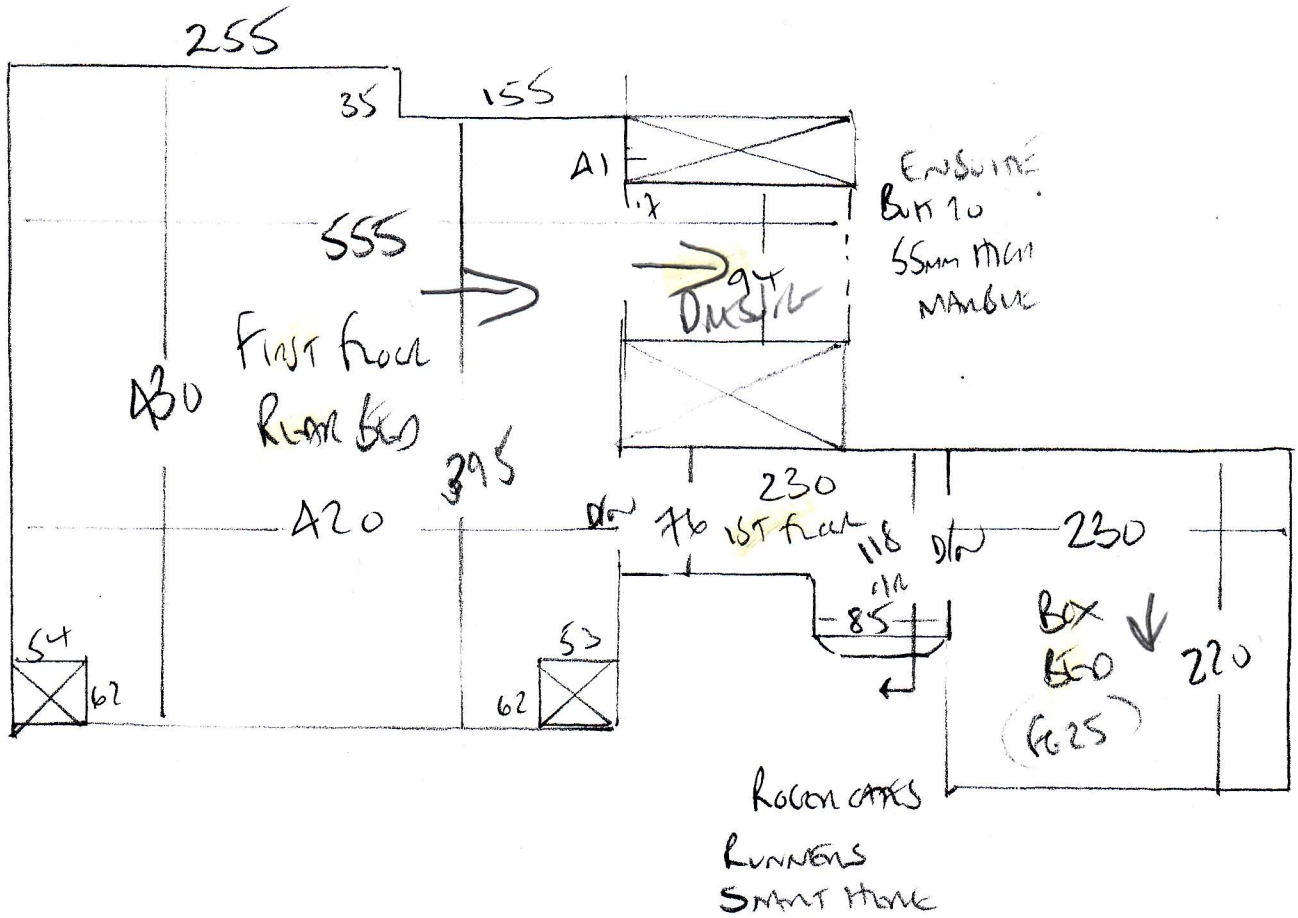 255
35
155
41
17
ENSUITE
BUTT TO
55MM HIGH
MARBLE
555
94
DRESSING
FIRST FLOOR
REAR BED
430
395
420
D/W
76
230
1ST FLOOR
118
D/W
230
85
BOX
BED
220
54
62
53
62
RUNNERS
SMART HOME